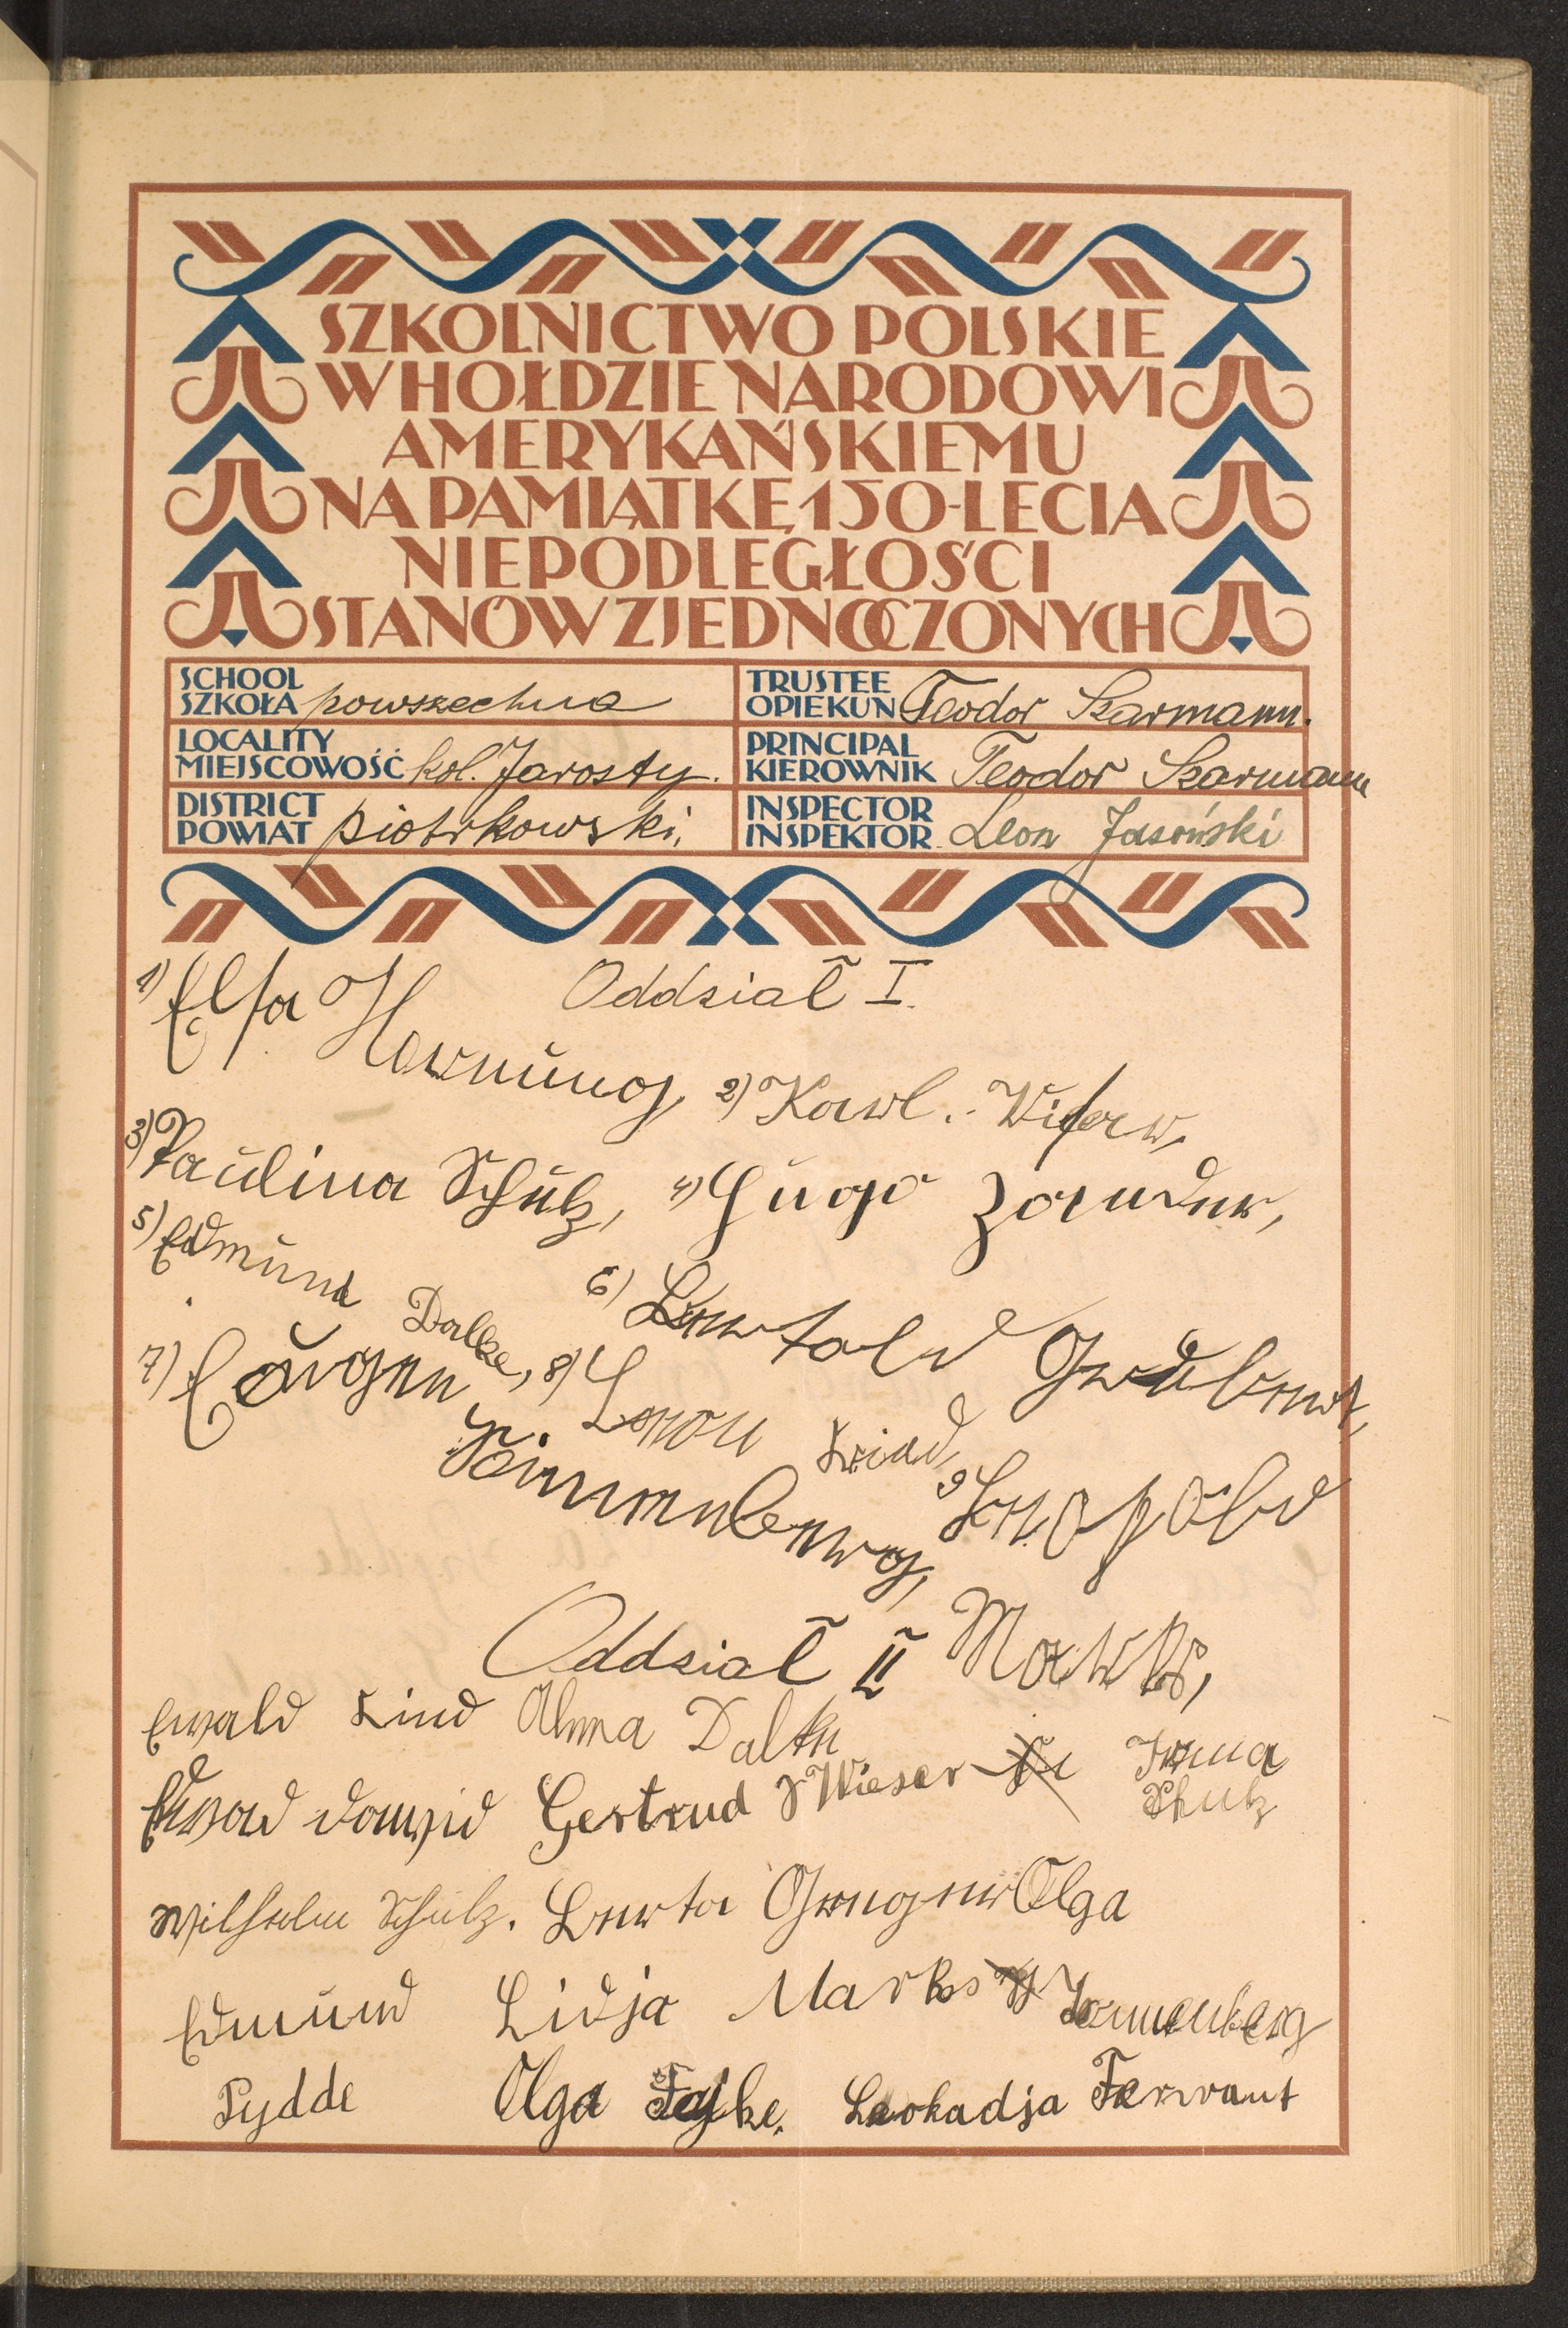 SZKOLNICTWO POLSKIE
W HOŁDZIE NARODOWI
AMERYKAŃSKIEMU
NA PAMIĄTKĘ 150-LECIA
NIEPODLEGŁOŚCI
STANÓW ZJEDNOCZONYCH
SCHOOL
SZKOŁA powszechna
TRUSTEE
OPIEKUN Teodor Szarmann.
LOCALITY
MIEJSCOWOŚĆ kol. Jarosty.
PRINCIPAL
KIEROWNIK Teodor Szarmann
DISTRICT
POWIAT piotrkowski.
INSPECTOR
INSPEKTOR Leon Jasoński
Oddział I.
1) Elsa Hornung, 2) Karl
3) Paulina Schulz, 4) Hugo Zander,
5) Edmund Dalke, 6) Bertold
7) Eugen Sonnenberg, 8) Leon Kind,
9) Leopold Marks,
Oddział II
Ewald Kind Alma Dalke
Gertrud Wieser Irma
Schulz
Wilhelm Schulz. Berta Olga
Edmund Lidja Marks Sonnenberg
Pydde Olga Fajke. Leokadja Ferwant